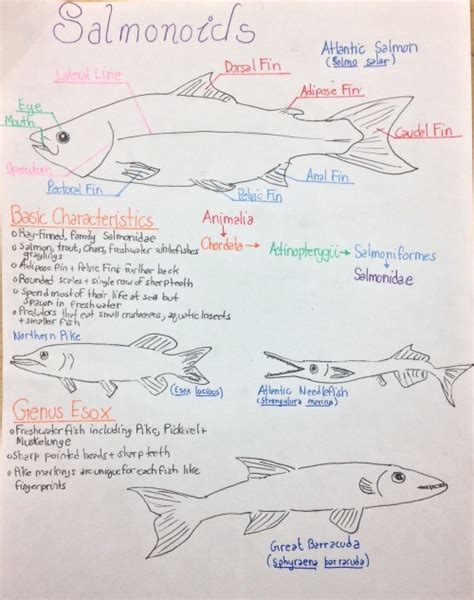 Salmonoids
Atlantic Salmon
(Salmo salar)
Lateral Line
Dorsal Fin
Adipose Fin
Eye
Mouth
Caudel Fin
Operculum
Pactoral Fin
Pelvic Fin
Anal Fin
Basic Characteristics
Ray-Finned, family Salmonidae
Salmon, trout, Chars, freshwater whitefishes
graylings
Adipose fin + Pelvic Fins further back
Rounded scales + single row of sharp teeth
Spend most of their life at sea but
spawn in freshwater
Predators that eat small crustaceans, aquatic insects
+ smaller fish
Animalia
Chordata → Actinopterygii → Salmoniformes
Salmonidae
Northern Pike
(Esox lucious)
Atlantic Needlefish
(Strongylura marina)
Genus Esox
Freshwater fish including Pike, Pickerel +
Muskelunge
Sharp pointed heads + sharp teeth
Pike markings are unique for each fish like
fingerprints
Great Barracuda
(Sphyraena barracuda)